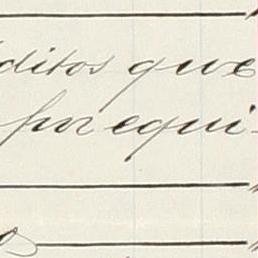 ditos que
por equi-